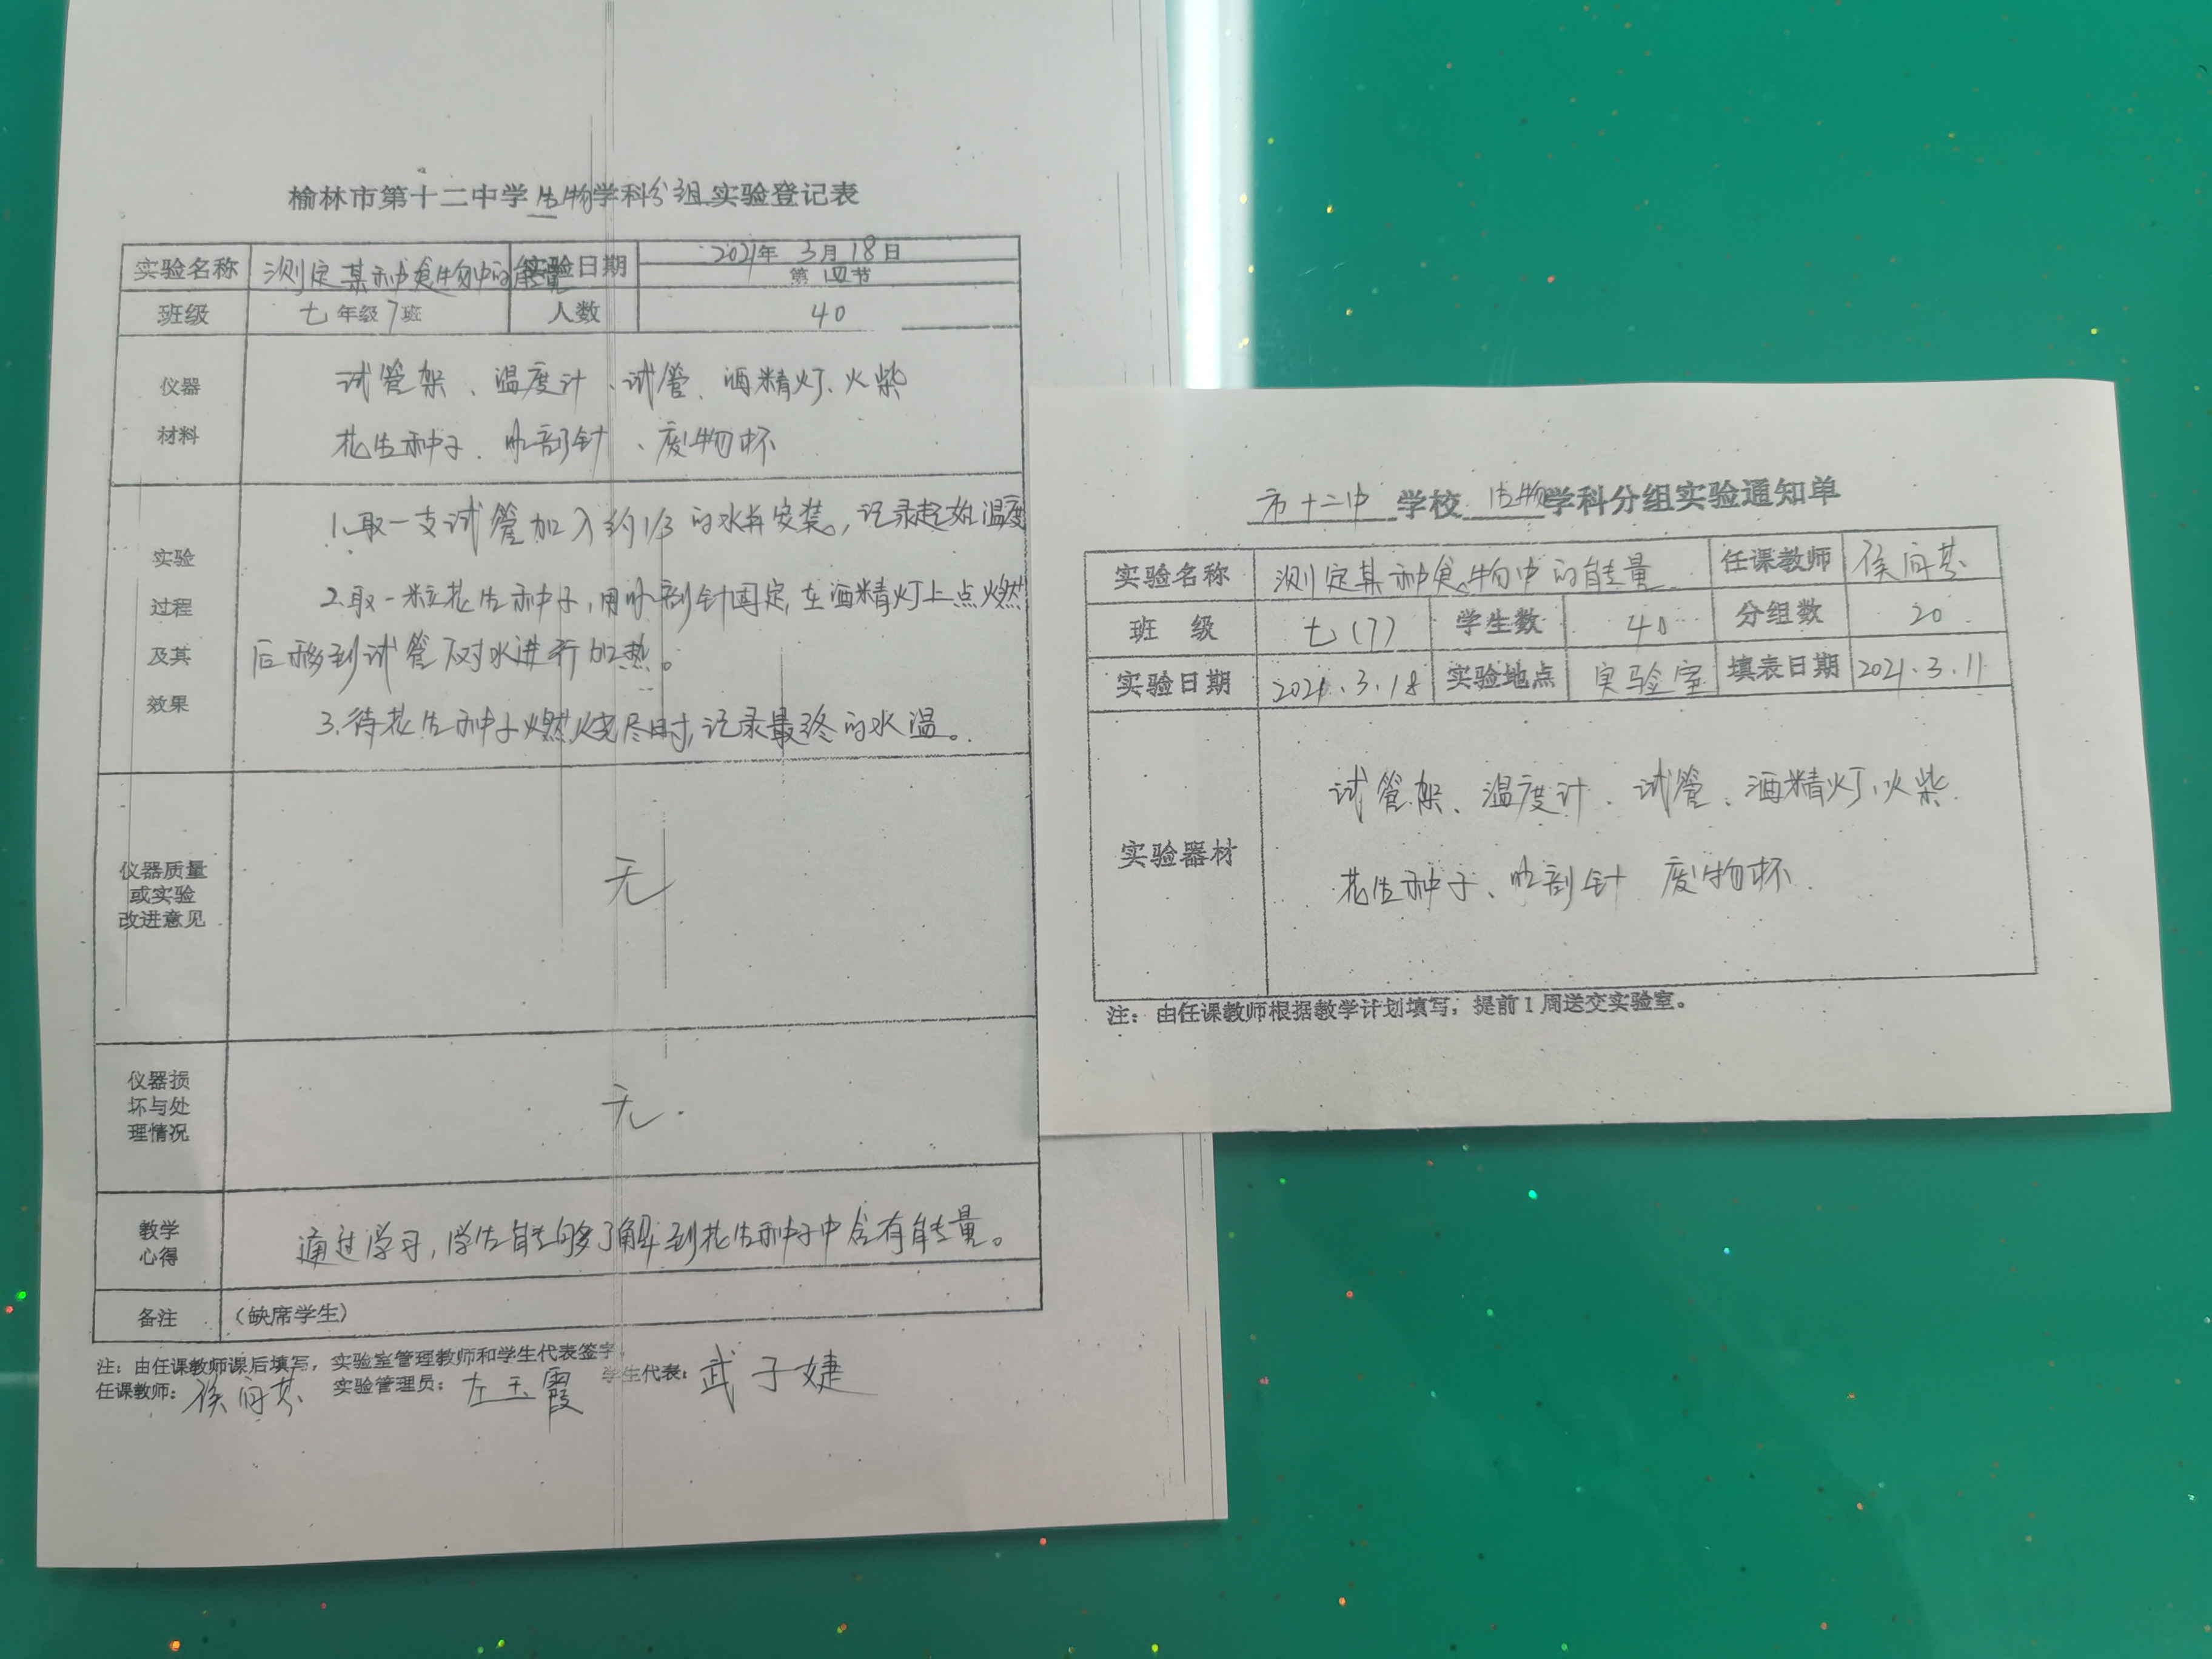 榆林市第十二中学生物学科分组实验登记表
实验名称 测定某种食物中的能量 实验日期 2021年 3月18日
第四节
班级 七年级7班 人数 40
仪器 材料
试管架、温度计、试管、酒精灯、火柴
花生种子、解剖针、废物杯
实验 过程 及其 效果
1.取一支试管加入约1/3的水并安装。,记录起始温度
2.取一粒花生种子,用解剖针固定,在酒精灯上点燃
后移到试管下对水进行加热。
3.待花生种子燃烧尽时,记录最终的水温。
仪器质量
或实验
改进意见
无
仪器损
坏与处
理情况
无.
教学
心得
通过学习,学生能够了解到花生种子中含有能量。
备注 (缺席学生)
注:由任课教师课后填写,实验室管理教师和学生代表签字
任课教师: 侯 实验管理员:左玉霞 学生代表:武子婕
市十二中学校生物学科分组实验通知单
实验名称 测定某种食物中的能量 任课教师 侯
班 级 七(7) 学生数 40 分组数 20
实验日期 2021.3.18 实验地点 实验室 填表日期 2021.3.11
实验器材
试管架、温度计、试管、酒精灯、火柴
花生种子、解剖针 废物杯
注: 由任课教师根据教学计划填写,提前1周送交实验室。